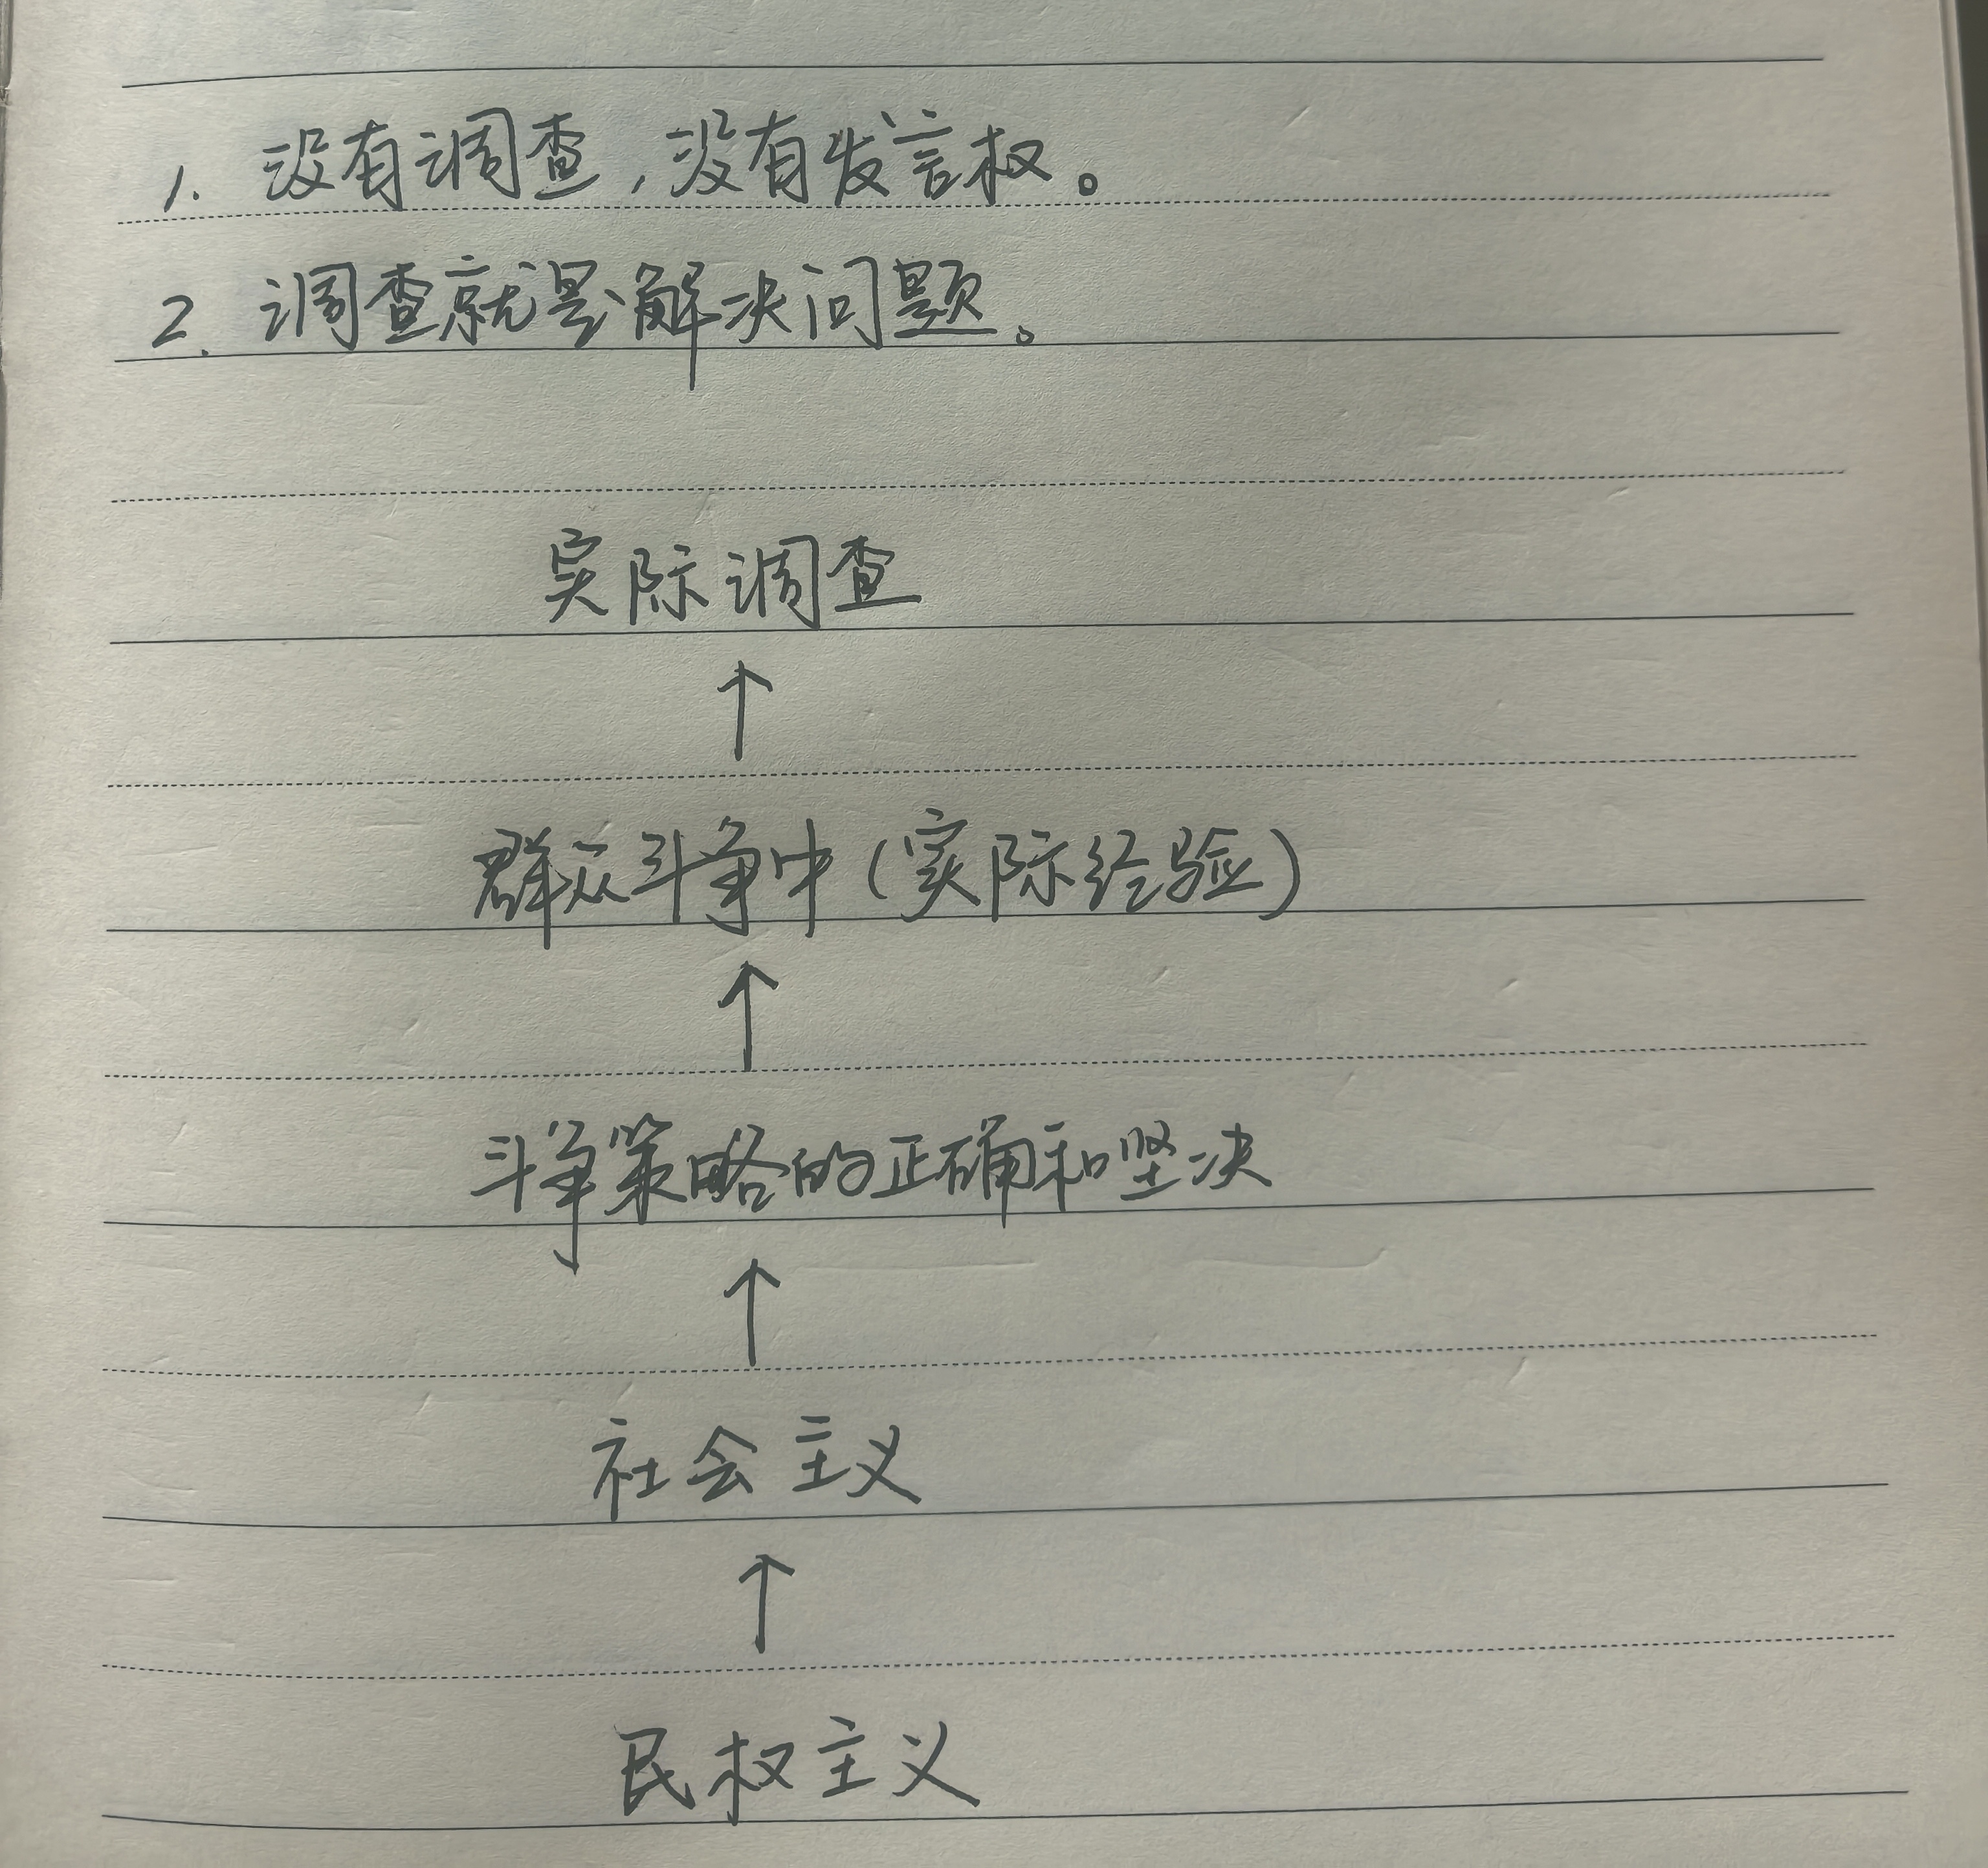 1. 没有调查,没有发言权。
2. 调查就是解决问题。
实际调查
↑
群众斗争中(实际经验)
↑
斗争策略的正确和坚决
↑
社会主义
↑
民权主义